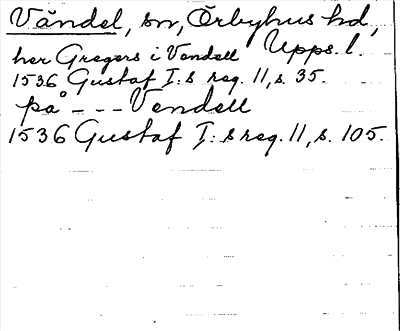 Vändel, sn, Örbyhus hd,
her Gregers i Vendell Upps. l.
1536 Gustaf I:s reg. 11, s. 35.
på - - - Vendell
1536 Gustaf I:s reg. 11, s. 105.